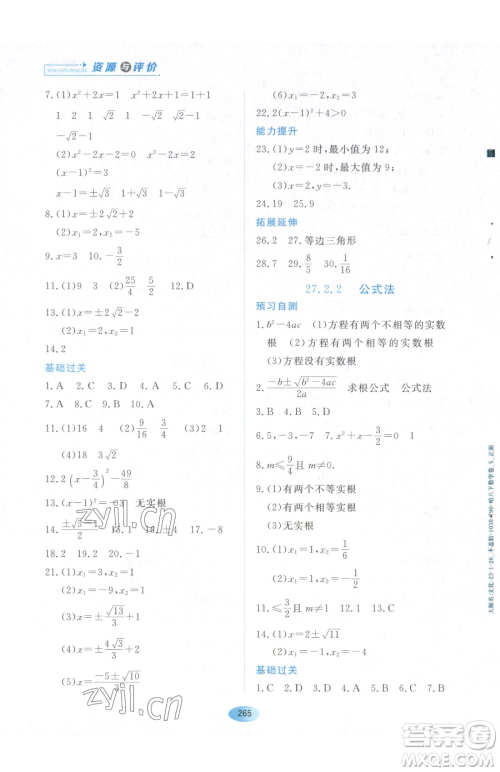 资源与评价
7.(1)x²+2x=1 x²+2x+1=1+1
1 2 1 √2 -1±√2
(2)x²-2x-2=0 x²-2x=2
x²-2x+1=2+1 (x-1)²=3
x-1=±√3 1±√3 1±√3
8.(1)x₁=9,x₂=-1
(2)x₁=2,x₂=-6
9.x=3 10.-3/2
11.(1)9 3 (2)25/4 5/2 12.D
13.(1)x=±√2-2
(2)x₁=2,x₂=-1
14.2
基础过关
1.A 2.C 3.C 4.D 5.D 6.D
7.A 8.C 9.A 10.A
11.(1)16 4 (2)9/16 3/4 (3)2 1
(4)18 3√2
12.2(x-3/4)²-49/8
13.(x-1)²=-3 无实根
14.(±√3-1)/2 15.1 16.1 17.-8
18.2 19.2 20.4
21.(1)x₁=1,x₂=3
(2)x₁=-9,x₂=1
(3)x=(-3±√13)/2
(5)x=(-5±√10)/5
(6)x₁=2,x₂=-1
22.2(x-1)²+4>0
能力提升
23.(1)y=2时,最小值为12;
(2)x=2时,最大值为9;
(3)x=1,y=-2.
24.19 25.9
拓展延伸
26.2 27.等边三角形
28.7 29.8/5 30.1/16
27.2.2 公式法
预习自测
1.b²-4ac (1)方程有两个不相等的实数
根 (2)方程有两个相等的实数根
(3)方程没有实数根
2.(-b±√(b²-4ac))/2a 求根公式 公式法
3.B 4.B 5.D
6.5,-3,-7 7.x²+x-3/2=0 1
8.m≤9/4且m≠0
9.(1)有两个不等实根
(2)有两个不等实根
(3)无实根
10.(1)x₁=1,x₂=1/6
(2)x₁=1,x₂=-1/2
11.≤3/2且≠1 12.0 13.C
14.(1)x₁=5,x₂=-1
(2)x₁=8,x₂=-2
基础过关
1.C 2.D 3.A 4.D 5.D 6.B
265
zyjl.cn
zyjl.cn